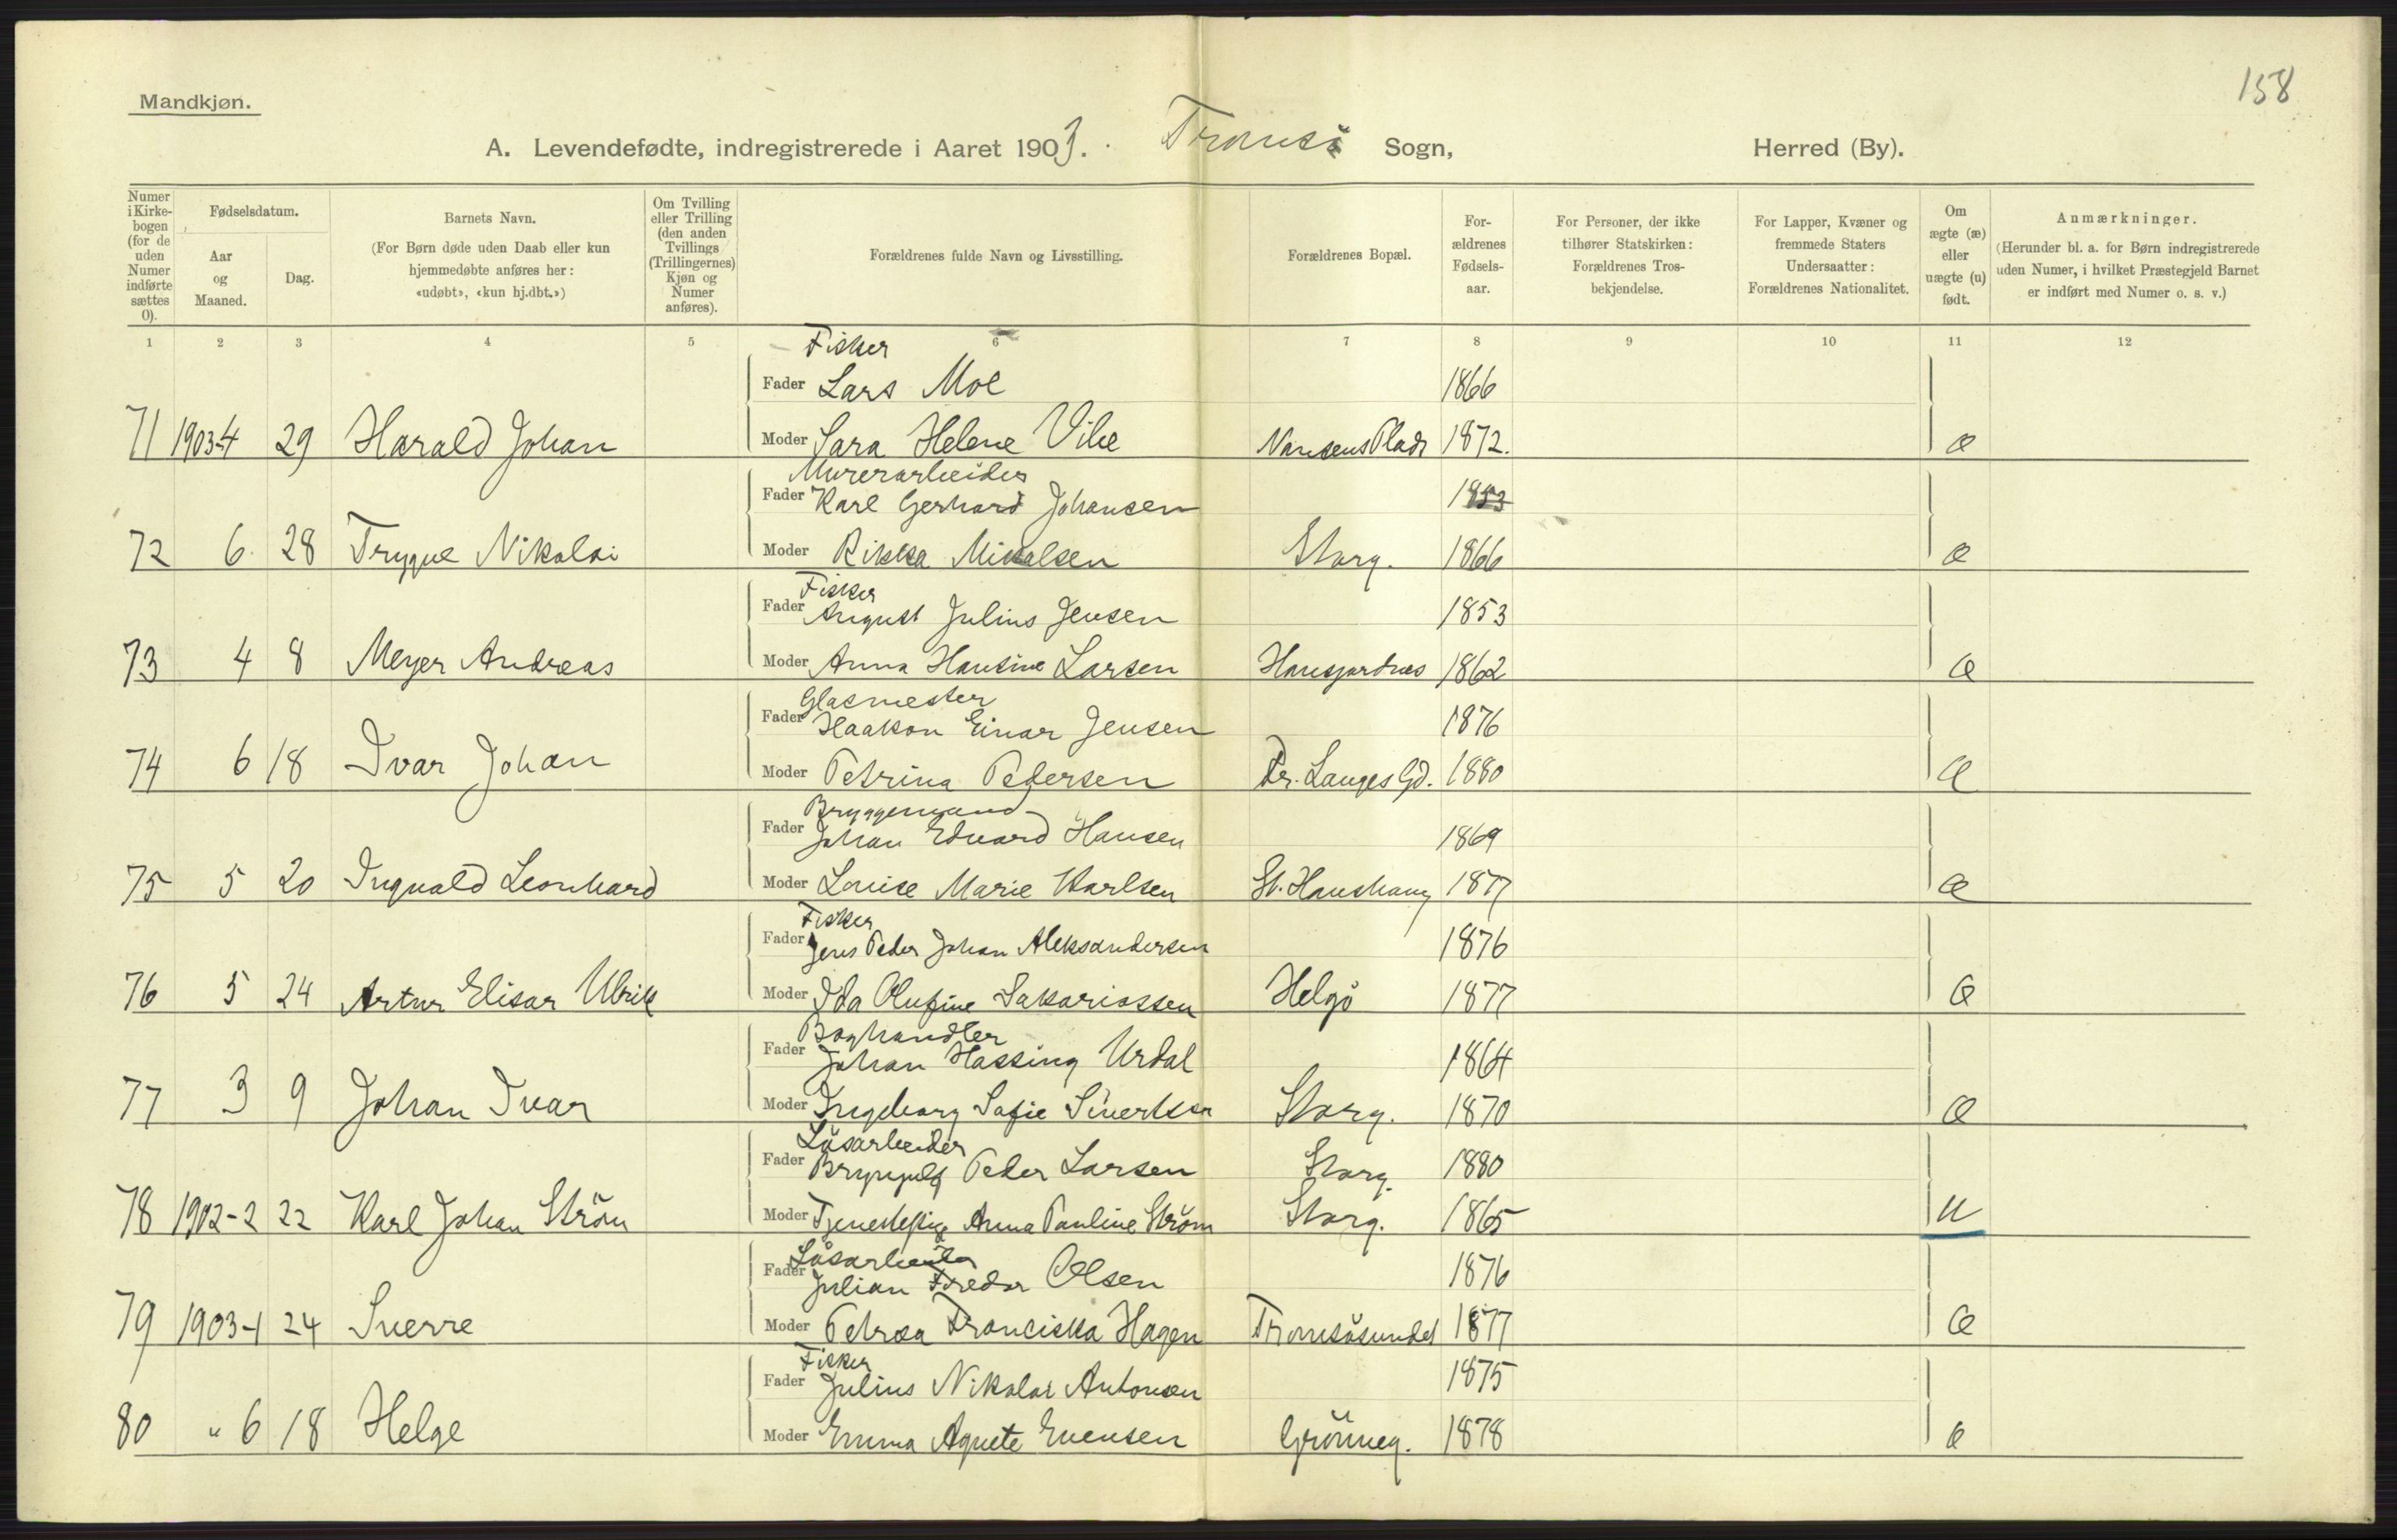 158
Mandkjøn.
A. Levendefødte, indregistrerede i Aaret 1903. Tromsö Sogn, Herred (By).
Numer i Kirkebogen (for de uden Numer indførte sættes 0).
Fødselsdatum.
Aar og Maaned.
Dag.
Barnets Navn.
(For Børn døde uden Daab eller kun hjemmedøbte anføres her: «udøbt», «kun hj.dbt.»)
Om Tvilling eller Trilling (den anden Tvillings (Trillingernes) Kjøn og Numer anføres).
Forældrenes fulde Navn og Livsstilling.
Forældrenes Bopæl.
Forældrenes Fødselsaar.
For Personer, der ikke tilhører Statskirken: Forældrenes Trosbekjendelse.
For Lapper, Kvæner og fremmede Staters Undersaatter: Forældrenes Nationalitet.
Om ægte (æ) eller uægte (u) født.
Anmærkninger.
(Herunder bl. a. for Børn indregistrerede uden Numer, i hvilket Præstegjeld Barnet er indført med Numer o. s. v.)
1 2 3 4 5 6 7 8 9 10 11 12
Fisker
Fader Lars Moe 1866
71 1903-4 29 Harald Johan Moder Sara Helene Vibe Nansens Plads 1872. æ
Murerarbeider
Fader Karl Gerhard Johansen 1853
72 6 28 Trygve Nikolai Moder Rikka Mikalsen Storg. 1866 æ
Fisker
Fader August Julius Jensen 1853
73 4 8 Meyer Andreas Moder Anna Hansine Larsen Hansjordnes 1862 æ
Glasmester
Fader Haakon Einar Jensen 1876
74 6 18 Ivar Johan Moder Petrina Pedersen Dr. Langes Gd. 1880 æ
Bryggemand
Fader Johan Edvard Hansen 1869
75 5 20 Ingvald Leonhard Moder Louise Marie Karlsen St. Hanshaug 1877 æ
Fisker
Fader Jens Peder Johan Aleksandersen 1876
76 5 24 Artur Elisar Ulrik Moder Ida Olufine Sakariassen Helgö 1877 æ
Boghandler
Fader Johan Hassing Urdal 1864
77 3 9 Johan Ivar Moder Ingeborg Sofie Sivertsen Storg. 1870 æ
Lösarbeider
Fader Brynjulf Peder Larsen Storg. 1880
78 1902-2 22 Karl Johan Ström Moder Tjenestepige Anna Pauline Ström Storg. 1865 u
Lösarbeider
Fader Julian Fredor Olsen 1876
79 1903-1 24 Sverre Moder Petrea Franciska Hagen Tromsösundet 1877 æ
Fisker
Fader Julius Nikolai Antonsen 1875
80 " 6 18 Helge Moder Emma Agnete Evensen Grönneg. 1878 æ